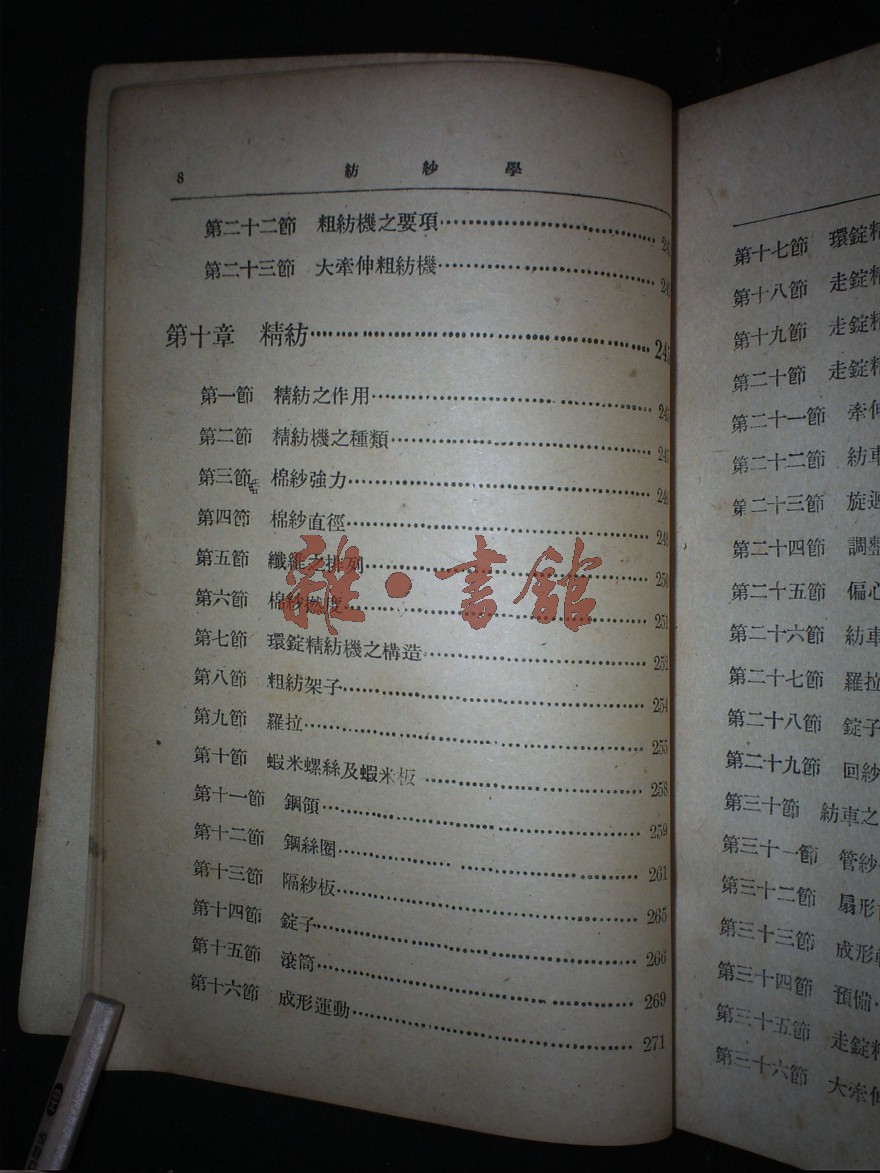 8 紡紗學
第二十二節 粗紡機之要項
第二十三節 大牽伸粗紡機
第十章 精紡
第一節 精紡之作用
第二節 精紡機之種類
第三節 棉紗強力
第四節 棉紗直徑 249
第五節 纖維之排列 250
第六節 棉紗撚度 251
第七節 環錠精紡機之構造 252
第八節 粗紡架子 254
第九節 羅拉 255
第十節 蝦米螺絲及蝦米板 258
第十一節 鋼領 259
第十二節 鋼絲圈 261
第十三節 隔紗板 265
第十四節 錠子 266
第十五節 滾筒 269
第十六節 成形運動 271
雜·書館
第十七節 環錠精
第十八節 走錠精
第十九節 走錠精
第二十節 走錠精
第二十一節 牽伸
第二十二節 紡車
第二十三節 旋迴
第二十四節 調整
第二十五節 偏心
第二十六節 紡車
第二十七節 羅拉
第二十八節 錠子
第二十九節 回紗
第三十節 紡車之
第三十一節 管紗
第三十二節 扇形
第三十三節 成形
第三十四節 預備
第三十五節 走錠精
第三十六節 大牽伸
HB